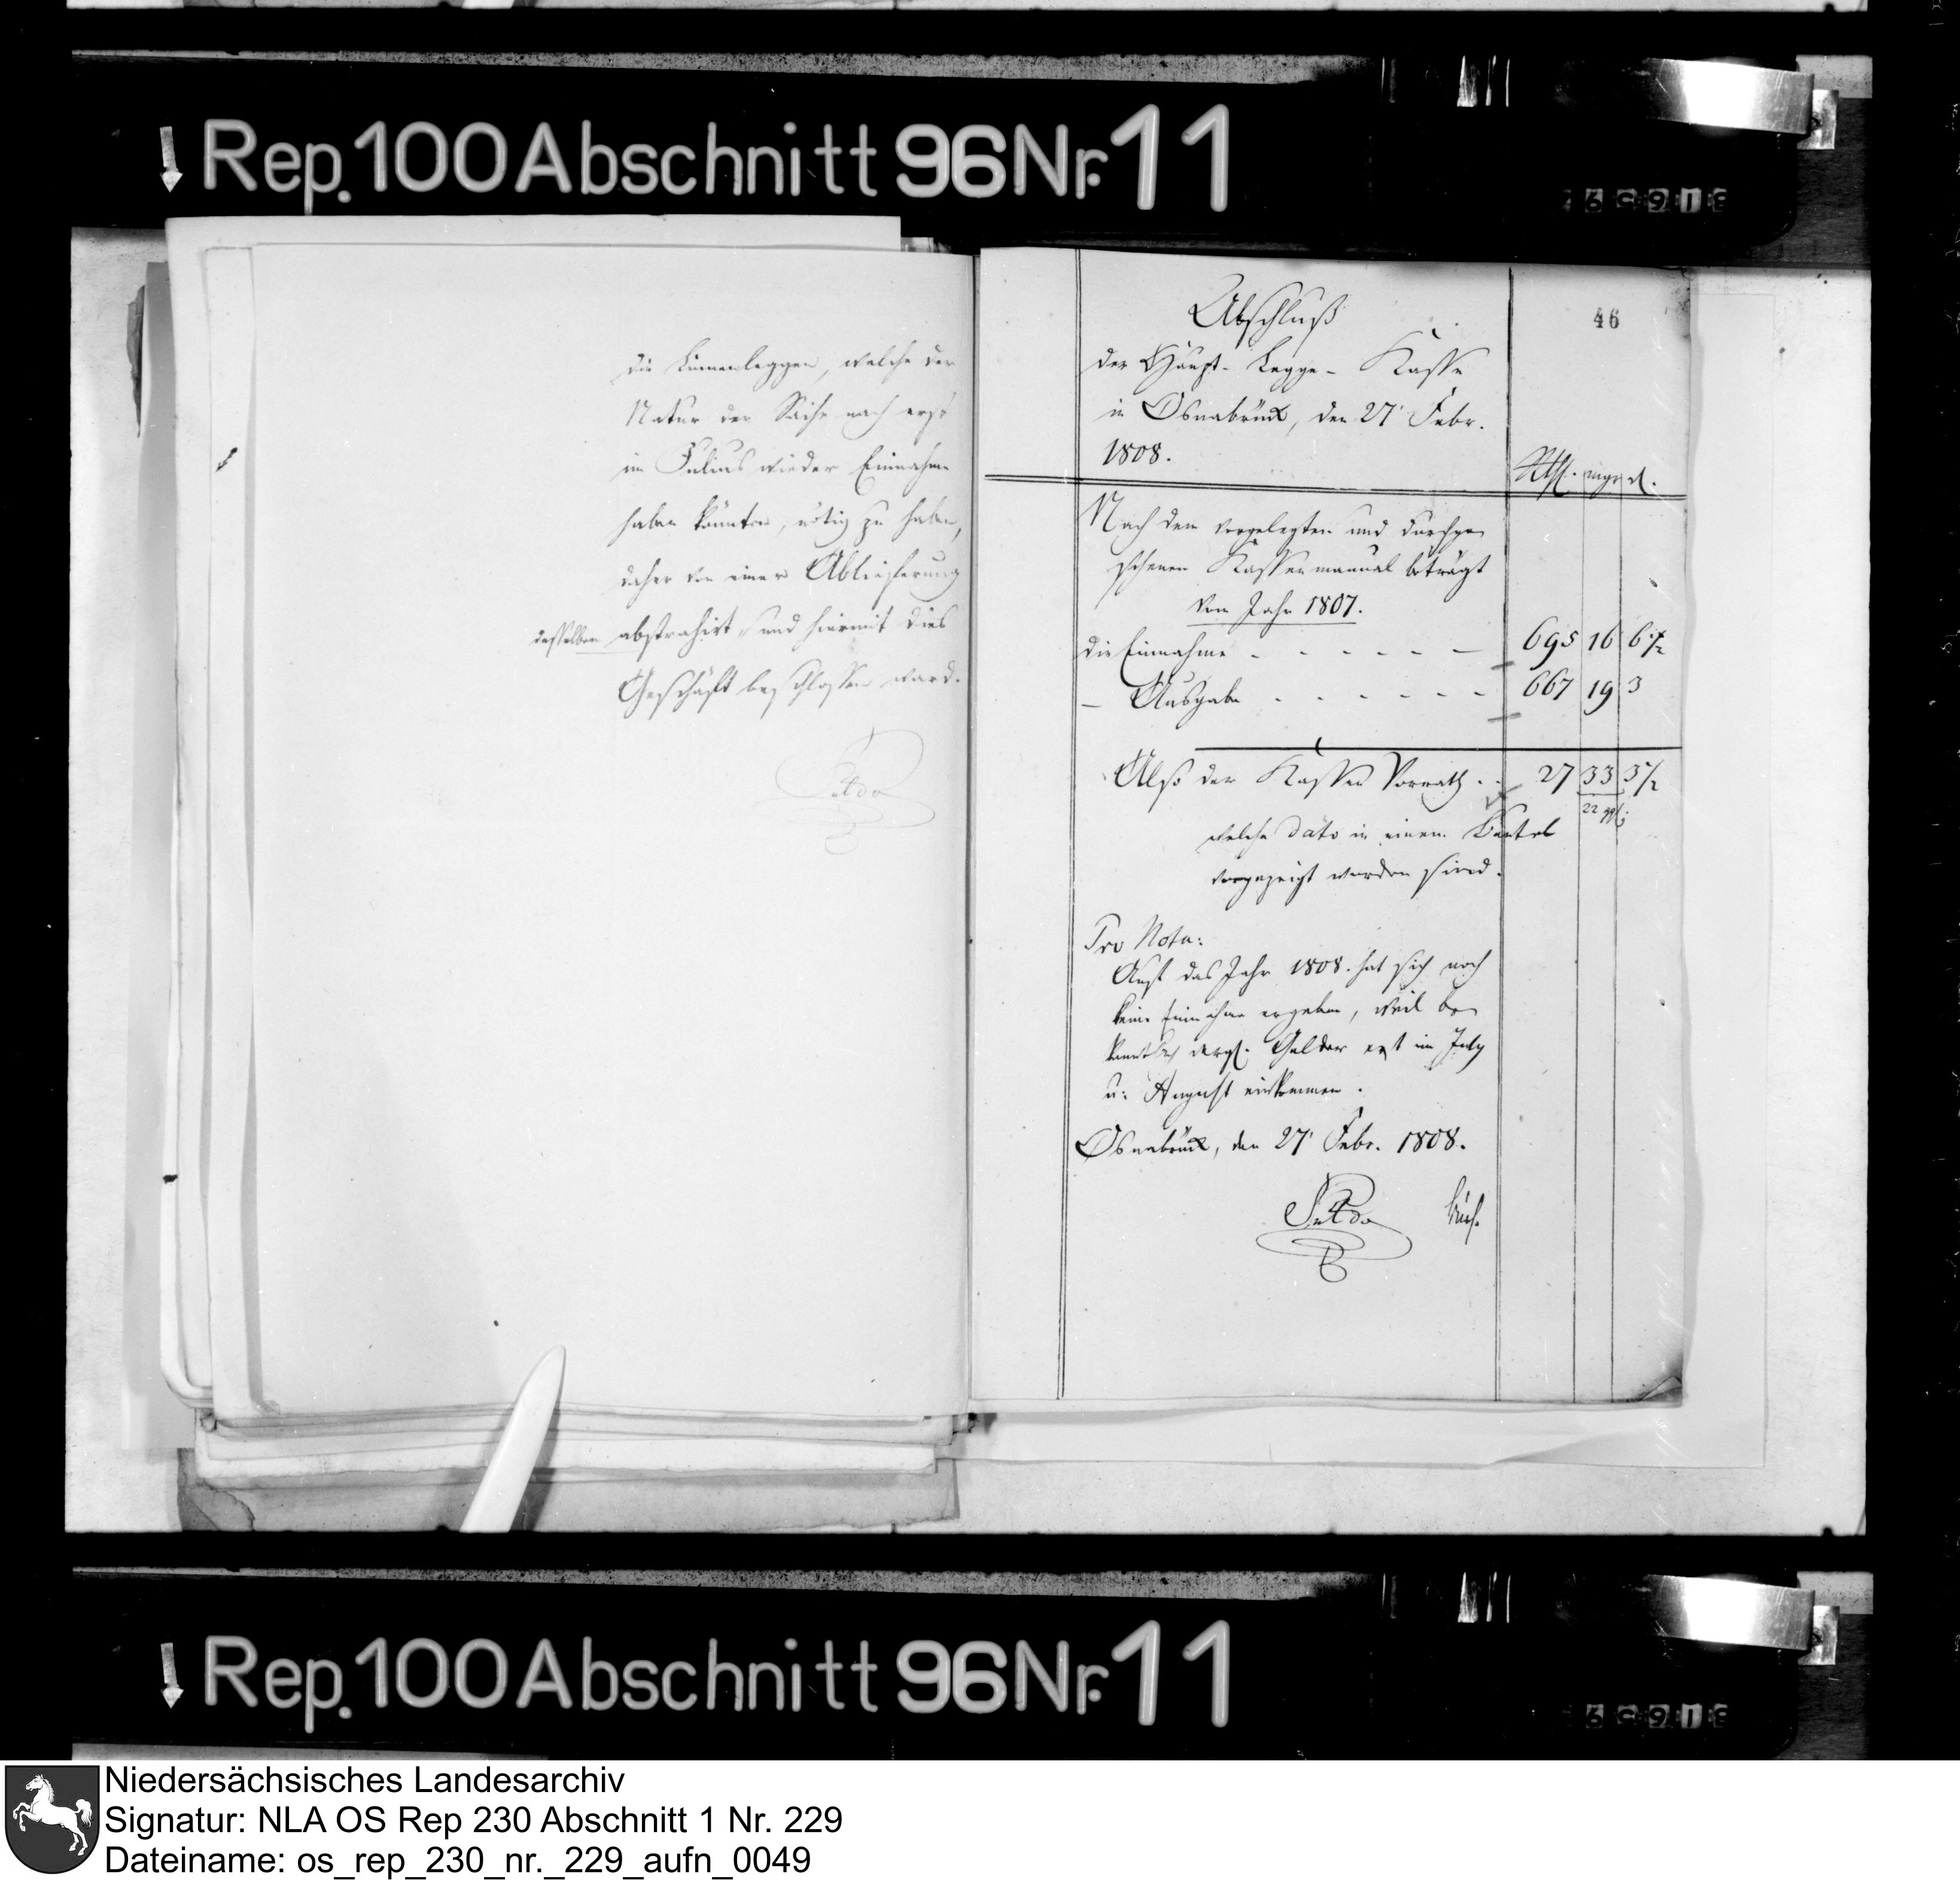 Rep. 100 Abschnitt 96 Nr. 11
die Linnenleggen, welche der
Natur der Sache nach erst
im Julius wieder Einnahme
haben könnten, nötig zu haben,
daher von einer Ablieferung
desselben abstrahirt, und hiermit dies
Geschäft beschlossen ward.
46
Abschluß
der Haupt-Legge-Kasse
in Osnabrück, den 27' Febr.
1808.
Rthl. mgr d.
Nach dem vorgelegten und durchge
sehenen Kassenmanual beträgt
vom Jahr 1807.
die Einnahme - - - - - - 695 16 6 1/2
— Ausgabe - - - - - - 667 19 3
Also der Kassen Vorrath . . 27 33 3 1/2
22 ggl:
welche dato in einem Beutel
vorgezeigt worden sind.
Pro Nota:
Auf das Jahr 1808. hat sich noch
keine Einnahme ergeben, weil be
kanntlich dergl. Gelder erst im July
u: August einkommen.
Osnabrück, den 27' Febr. 1808.
Rep. 100 Abschnitt 96 Nr. 11
Niedersächsisches Landesarchiv
Signatur: NLA OS Rep 230 Abschnitt 1 Nr. 229
Dateiname: os_rep_230_nr._229_aufn_0049